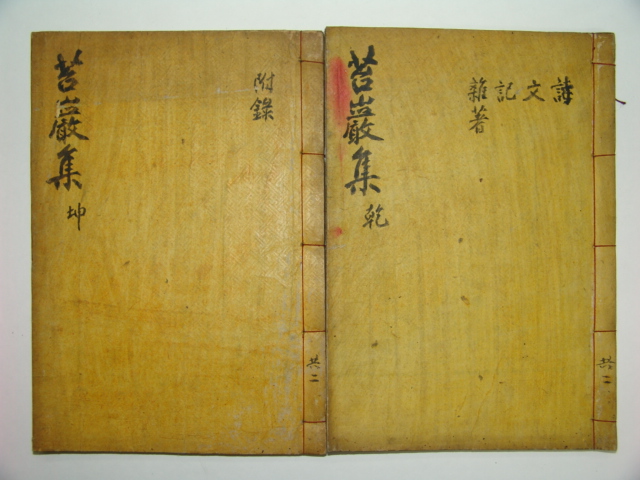 苔巖集 乾
詩
文
記
雜著
共二
苔巖集 坤
附錄
共二